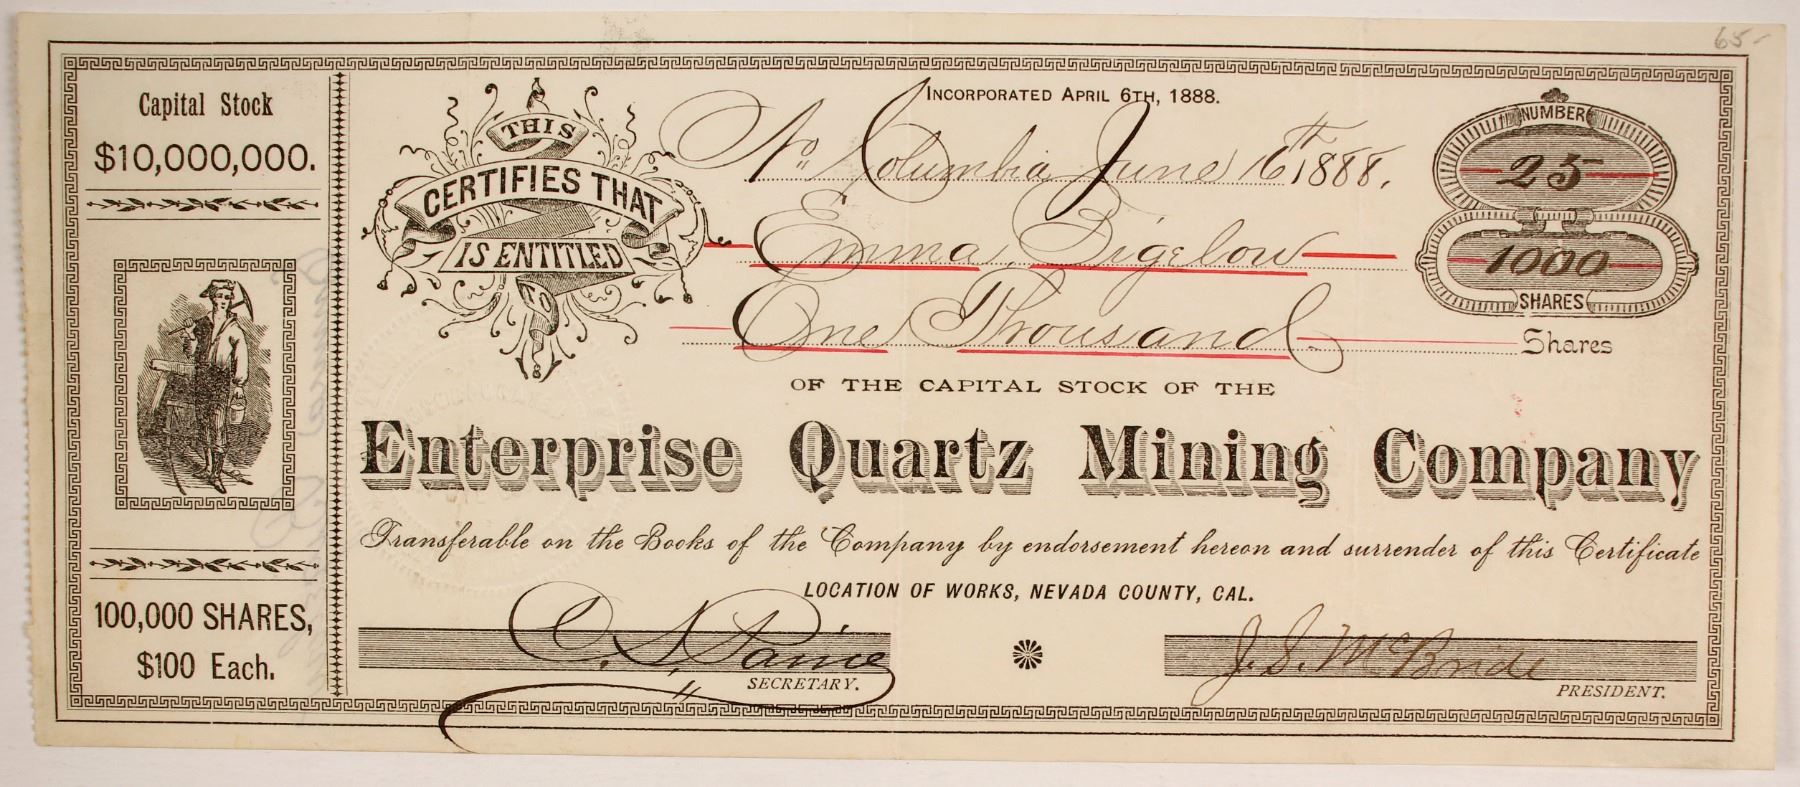 65-
Capital Stock
$10,000,000.
100,000 SHARES,
$100 Each.
THIS
CERTIFIES THAT
IS ENTITLED
TO
INCORPORATED APRIL 6TH, 1888.
No. Columbia June 16th 1888.
Emma Bigelow
One Thousand Shares
NUMBER
25
1000
SHARES
OF THE CAPITAL STOCK OF THE
Enterprise Quartz Mining Company
Transferable on the Books of the Company by endorsement hereon and surrender of this Certificate
LOCATION OF WORKS, NEVADA COUNTY, CAL.
SECRETARY.
J. S. McBride
PRESIDENT.